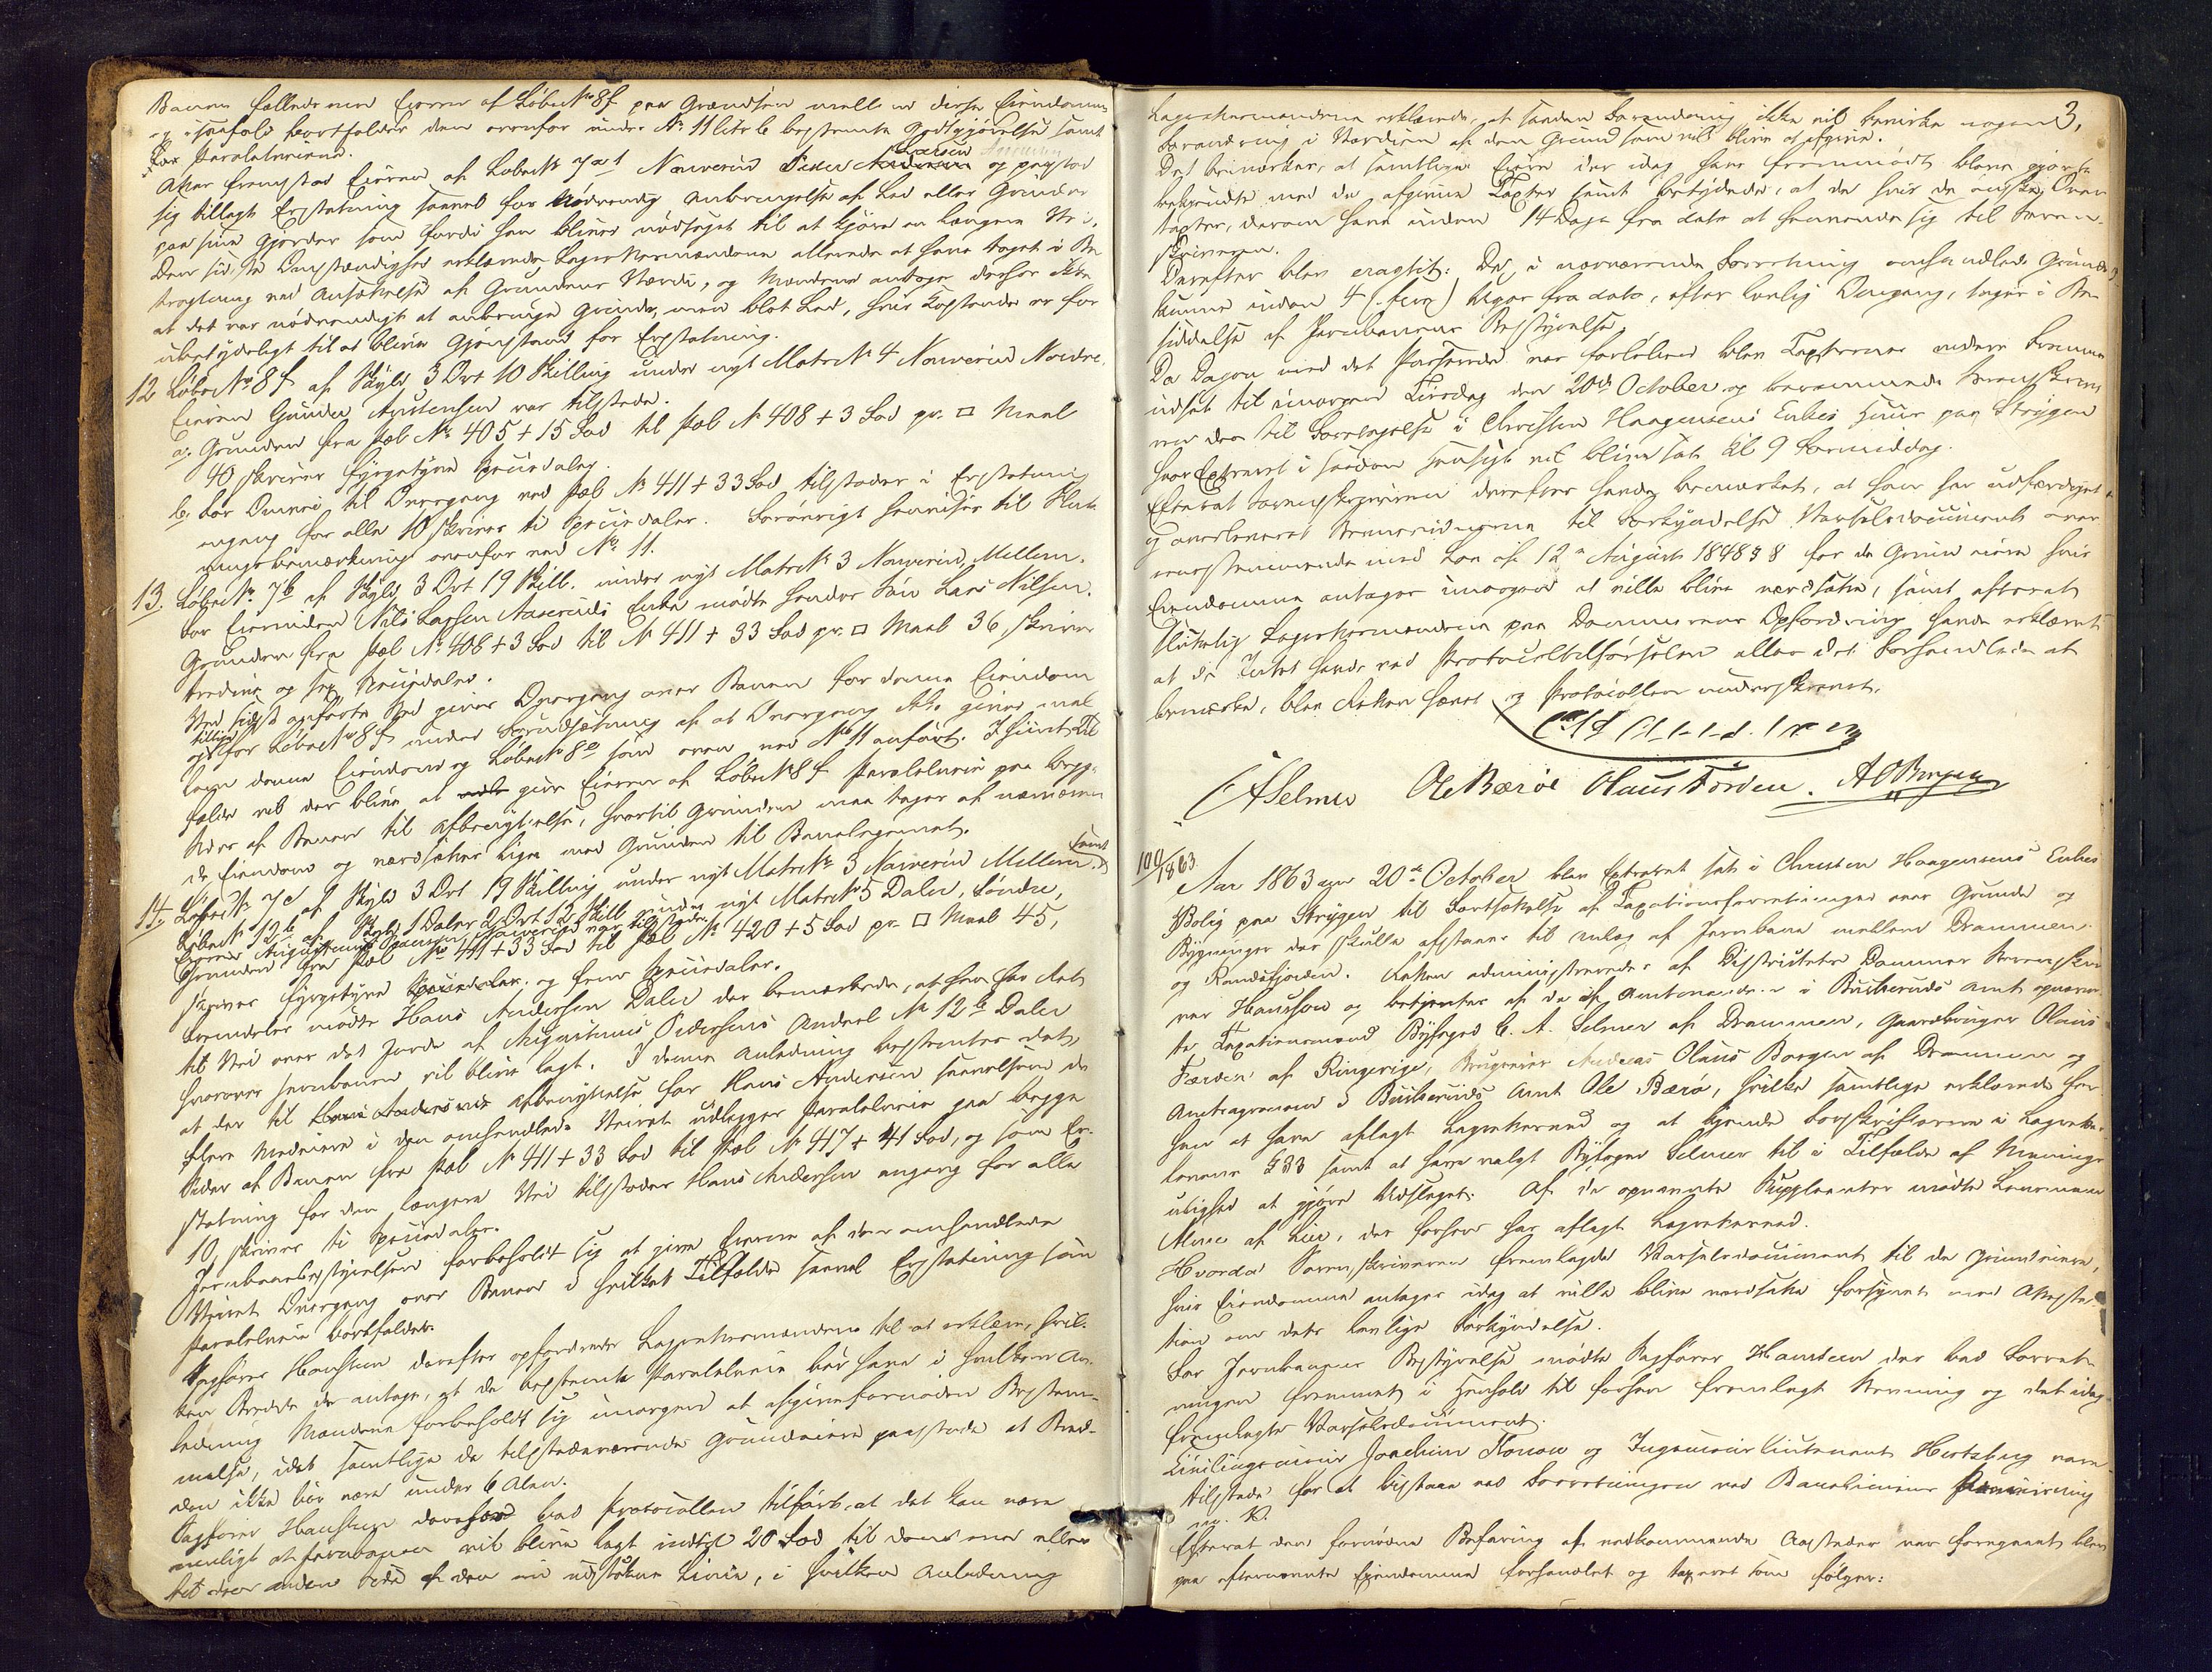 Banen fælleds med Eieren af Løbe No 8f paa Grændsen mellem disse Eiendomme
og isaafald bortfalder den ovenfor under No 11 litr b bestemte Godtgjørelse samt
Paralelveiene.
Atter fremstod Eieren af LøbeNo 7a1 Narverud Peder Larsen og paastod
sig tillagt Erstatning saavel for nødvendig Anbringelse af Led eller Grinder
paa sine Gjerder som fordi han bliver nødsaget til at kjøre en længere Vei.
Den sidste Omstændighed erklærede Lagrettesmændene allerede at have taget i Be-
tragtning ved Ansættelse af Grundens Værdi, og Mændene antoge derhos ikke
at det var nødvendigt at anbringe Grinde, men blot Led, hvis Kostende er for
ubetydeligt til at blive Gjenstand for Erstatning.
12 LøbeNo 8f af Skyld 3 Ort 10 Skilling under nyt MatrNo 4 Narverud Nordre.
Eieren Gunder Aristensen var tilstede.
a. Grunden fra Pæl No 405 + 15 Fod til Pæl No 408 + 3 Fod pr. □ Maal
40 skriver fyrgetyve Speciedaler.
b. For Ommei til Overgang ved Pæl No 411 + 33 Fod tilstaaes i Erstatning
engang for alle 10 skriver ti Speciedaler. Forøvrigt henvises til Slut-
ningsbemærkning ovenfor ved No 11.
13. LøbeNo 7b af Skyld 3 Ort 19 Skill. under nyt MatrNo 3 Narverud Mellem.
For Eierinden Nils Larsen Aaseruds Enke mødte hendes Søn Lars Nilsen.
Grunden fra Pæl No 408 + 3 Fod til No 411 + 33 Fod pr. □ Maal 36, skriver
tredive og sex Speciedaler.
Ved sidst anførte Sted gives Overgang over Banen for denne Eiendom
og tillige for LøbeNo 8f under Forudsætning af at Overgang ikke gives mel-
lem denne Eiendom og LøbeNo 8e som oven ved No 11 anført. I hiint Til-
fælde vil der blive at give Eieren af LøbeNo 8f Paralelvei paa begge
Sider af Banen til Afbenyttelse, hvortil Grunden maa tages af nærværen-
de Eiendom og værdsættes ligs med Grunden til Banelegemet.
14. LøbeNo 7c af Skyld 3 Ort 19 Skilling under nyt MatrNo 3 Narverud Mellem samt
LøbeNo 12b af Skyld 1 Daler 2 Ort 12 Skill under nyt MatrNo 5 Daler, Søndre,
Eieren Augustinus Pedersen Narverud var tilstede.
Grunden fra Pæl No 411 + 33 Fod til Pæl No 420 + 5 Fod pr □ Maal 45,
skriver fyrgetyve og fem Speciedaler.
Fremdeles mødte Hans Andersen Daler der bemærkede, at han har Ret
til Vei over det Jorde af Augustinus Pedersens Andeel No 12b Daler
hvorover Jernbanen vil blive lagt. I denne Anledning bestemtes det
at der til Afbenyttelse for Hans Andersen saavelsom de
flere Medeiere i den omhandlede Veiret udlægges Paralelveie paa begge
Sider af Banen fra Pæl No 411 + 33 Fod til Pæl No 417 + 41 Fod, og som Er-
statning for den længere Vei tilstaaes Hans Andersen engang for alle
10, skriver ti Speciedaler.
Jernbanebestyrelsen forbeholdt sig at give Eierne af den omhandlede
Veiret Overgang over Banen i hvilket Tilfælde saavel Erstatning som
Paralelveie bortfalder.
Sagfører Hansteen derefter opfordrede Lagrettesmændene til at erklære, hvil-
ken Bredde de antage, at de bestemte Paralelveie bør have i hvilken An-
ledning Mændene forbeholdt sig imorgen at afgive fornøden Bestem-
melse, idet samtlige de tilstedeværende Grundeiere paastode at Bred-
den ikke bør være under 6 Alen.
Sagfører Hansteen derefter bad Protocollen tilført, at det kan være
muligt at Jernbanen vil blive lagt indtil 20 Fod til den ene eller
til den anden Side af den nu udstukne Linie, i hvilken Anledning
3,
Lagrettesmændene erklærede, at saadan Forandring ikke vil bevirke nogen
Forandring i Værdien af den Grund som vil blive at afgive.
Det bemærkes, at samtlige Eiere der idag have fremmødt bleve gjorte
bekjendte med de afgivne Taxter samt betydede, at de hvis de ønske Over-
taxter, derom have inden 14 Dage fra dato at henvende sig til Soren-
skriveren.
Derefter blev eragtet: Det i nærværende Forretning omhandlede Grunde
kunne inden 4 (fire) Uger fra dato, efter lovlig Omgang, tages i Be-
siddelse af Jernbanens Bestyrelse.
Da Dagen med det Passerede var forløben blev Taxterne videre Fremme
udsat til imorgen Tirsdag den 20de October og berammedes Sorenskrive-
ren den til Foretagelse i Christen Haagensens Enkes Huus paa Strygen
hvor Extraret i saadan Hensigt vil blive sat Kl 9 Formiddag.
Efterat Sorenskriveren derefter havde bemærket, at han har udfærdiget
og overleveret Stevnevidnerne til Forkyndelse Varselsdocument over-
eensstemmende med Lov af 12te August 1848 § 8 for de Grundeiere hvis
Eiendomme antages imorgen at ville blive værdsatte, samt efterat
Sluttelig Lagrettesmændene paa Dommerens Opfordring havde erklæret
at de Intet havde ved Protocoltilførselen eller det Forhandlede at
bemærke, blev Retten hævet og Protocollen underskrevet.
CA Selmer Ole Bærøe Olaus Førden. A O Borgen
100/1863
Aar 1863 den 20de October blev Extraret sat i Christen Haagensens Enkes
Bolig paa Strygen til Fortsættelse af Taxationsforretninger over Grunde og
Bygninger der skulle afstaaes til Anlæg af Jernbane mellem Drammen
og Randsfjorden. Retten administreredes af Districtets Dommer Sorenskri-
ver Hansson og betjentes af de af Amtmanden i Buskeruds Amt opnævn-
te Taxationsmænd Byfoged C. A. Selmer af Drammen, Gaardbruger Olaus
Førden af Ringerige, Brugseier Andreas Olaus Borgen af Drammen og
Amtsagronom i Buskeruds Amt Ole Bærø, hvilke samtlige erklærede for-
hen at have aflagt Lagrettesed og at kjende Forskrifterne i Lagrette-
lovens § 33 samt at have valgt Byfoged Selmer til i Tilfælde af Menings-
ulighed at gjøre Udslaget. Af de opnævnte Supplenter mødte Lensmand
af Lier, der forhen har aflagt Lagrettesed.
Hvorda Sorenskriveren fremlagde Varselsdocument til de Grundeiere,
hvis Eiendomme antages idag at ville blive værdsatte forsynet med Attesta-
tion om dets lovlige Forkyndelse.
For Jernbanens Bestyrelse mødte Sagfører Hansteen der bad Forret-
ningen fremmet i Henhold til forhen fremlagt Stevning og det idag
fremlagte Varselsdocument.
Civilingenieur Joachim Konow og Ingenieur Lieutenant Hertzberg vare
tilstede for at bistaae ved Forretningen ved Banelinens Paaviisning
m. V.
Efterat den fornødne Befaring af vedkommende Aasteder var foregaaet blev
paa efternævnte Eiendomme forhandlet og taxeret som følger: